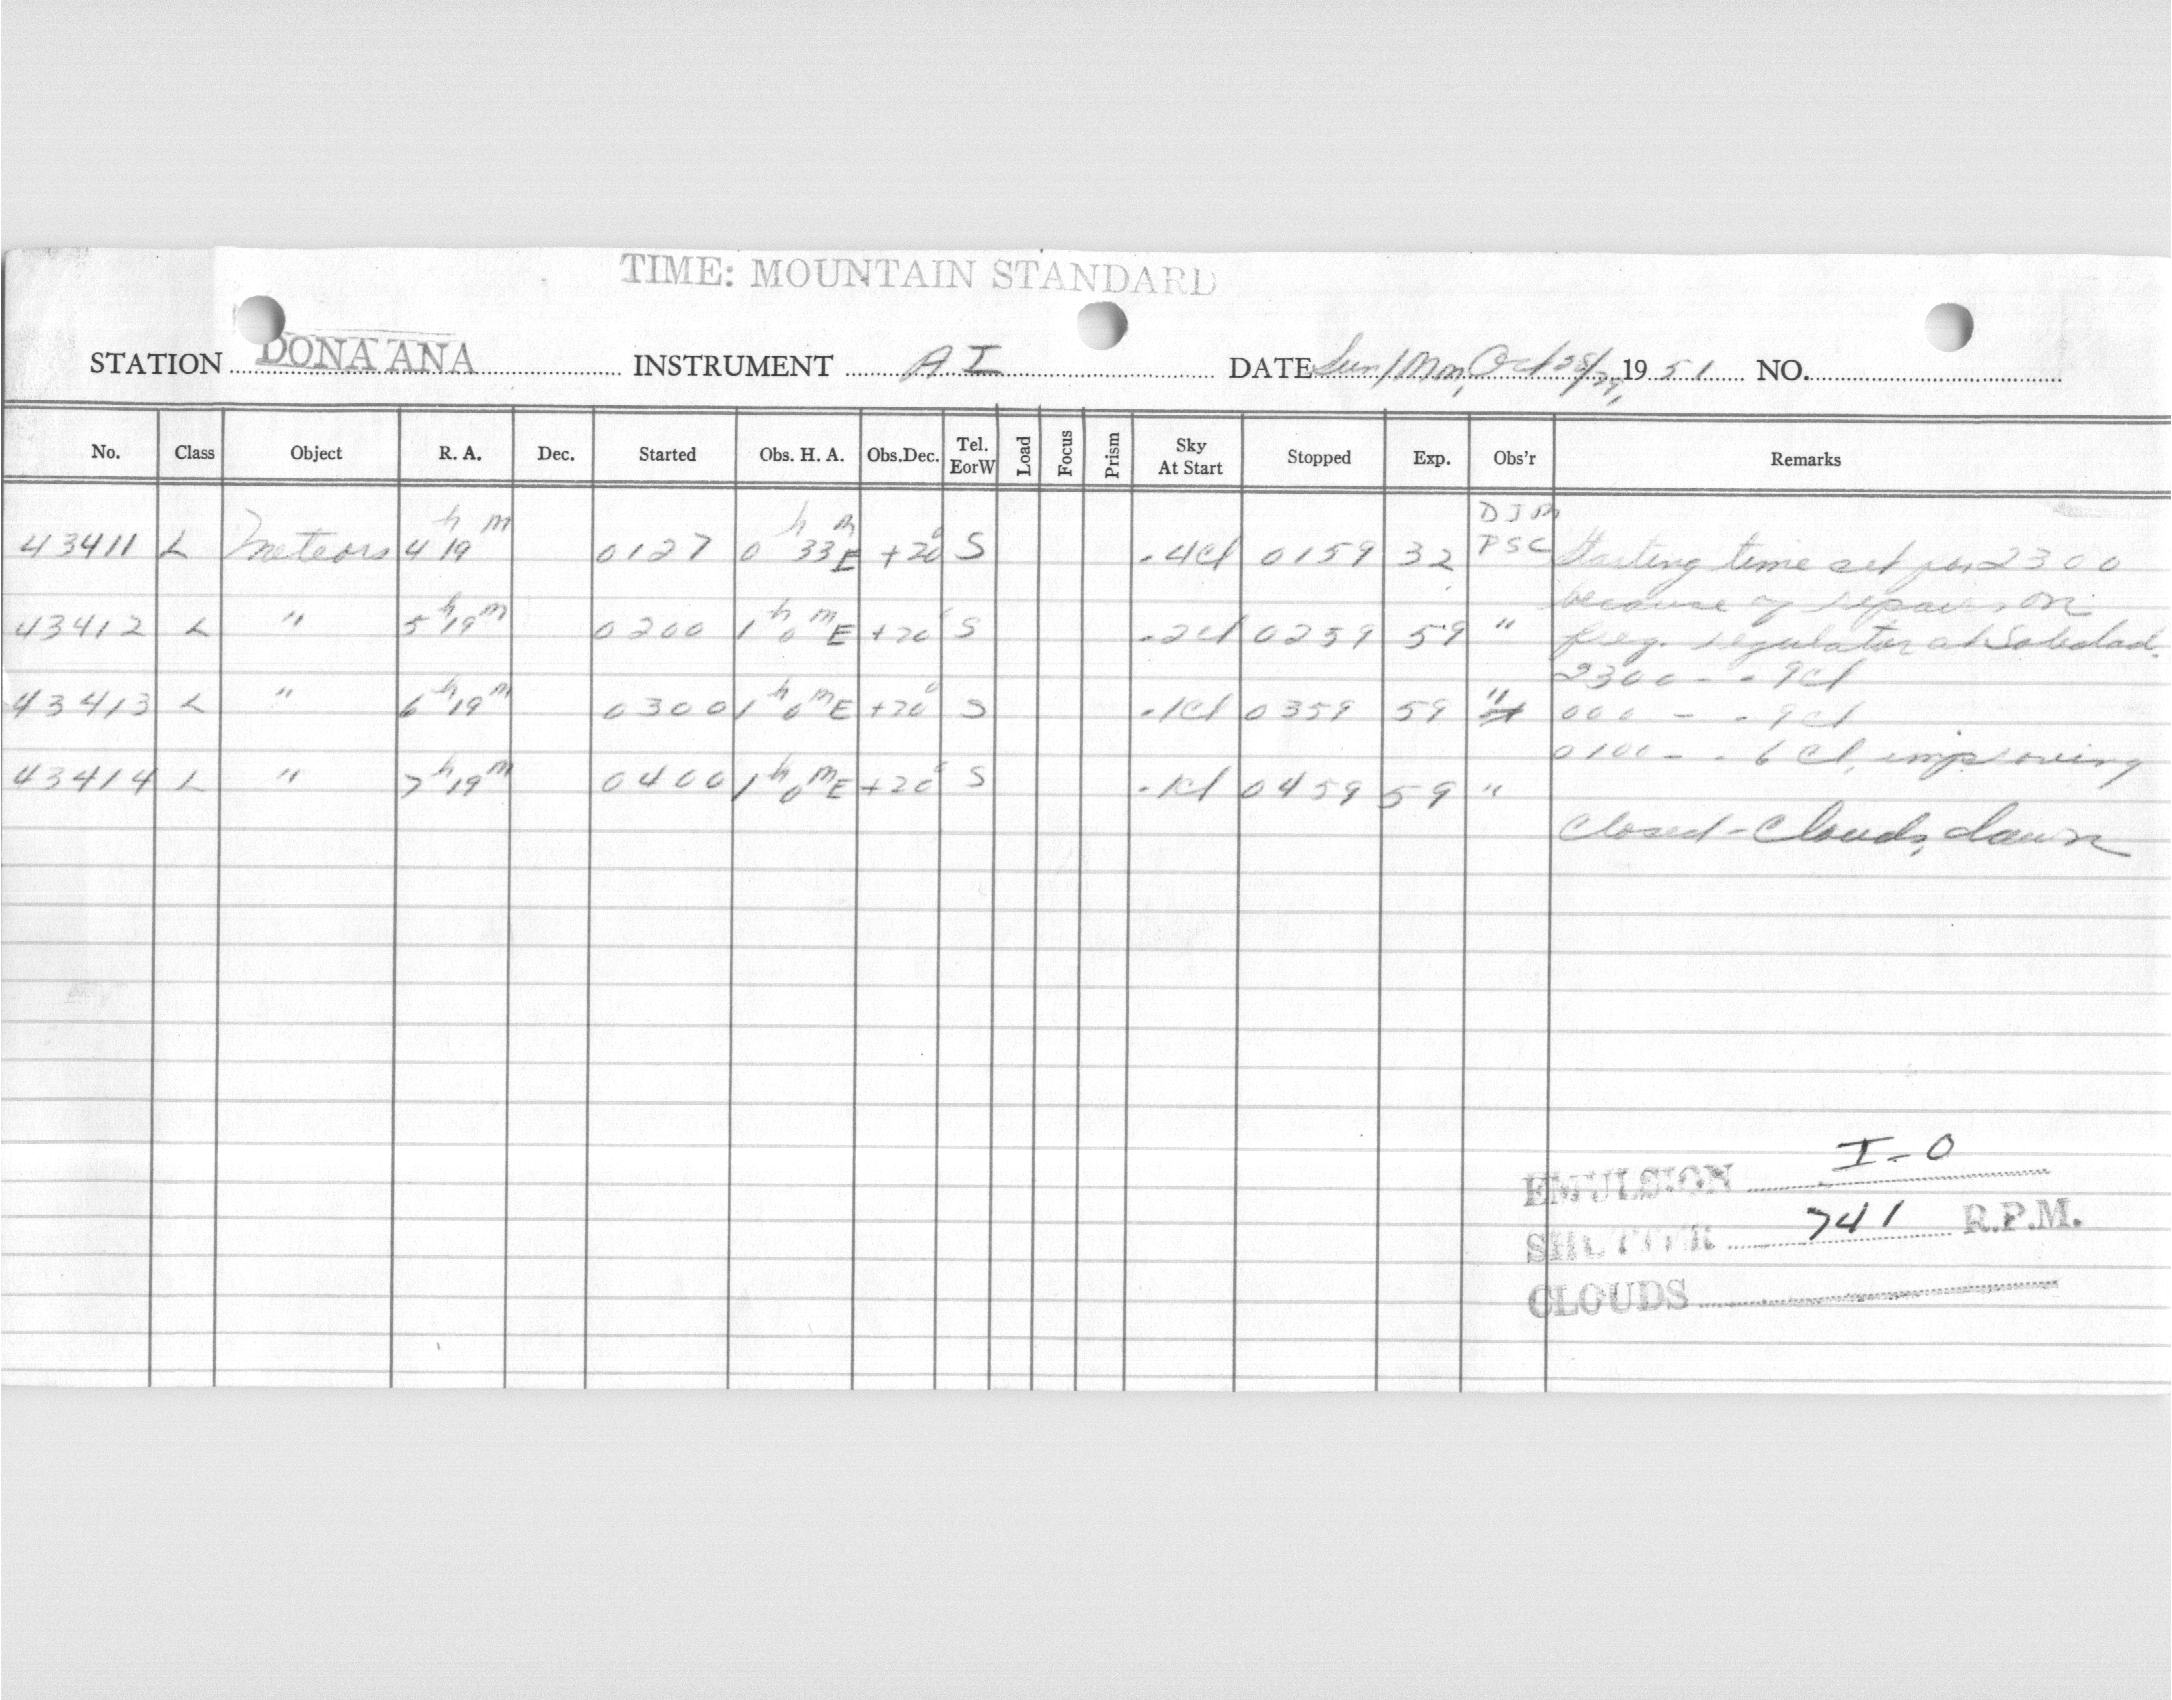 TIME: MOUNTAIN STANDARD
STATION DONA ANA INSTRUMENT A I DATE Sun/Mon, Oct 28/29, 1951 NO.
No. Class Object R. A. Dec. Started Obs. H. A. Obs.Dec. Tel. EorW Load Focus Prism Sky At Start Stopped Exp. Obs'r Remarks
43411 L Meteors 4h 19m 0127 0h 33m E +20° S .4Cl 0159 32 DJM PSC Starting time set for 2300
because of repairs on
43412 L " 5h 19m 0200 1h 0m E +20° S .2Cl 0259 59 "
freq. regulator at Soledad.
2300 - .9Cl
43413 L " 6h 19m 0300 1h 0m E +20° S .1Cl 0359 59 "
000 - .9Cl
0100 - .6Cl, improving
43414 L " 7h 19m 0400 1h 0m E +20° S .1Cl 0459 59 "
Closed - Clouds, dawn
EMULSION I-0
SHUTTER 741 R.P.M.
CLOUDS